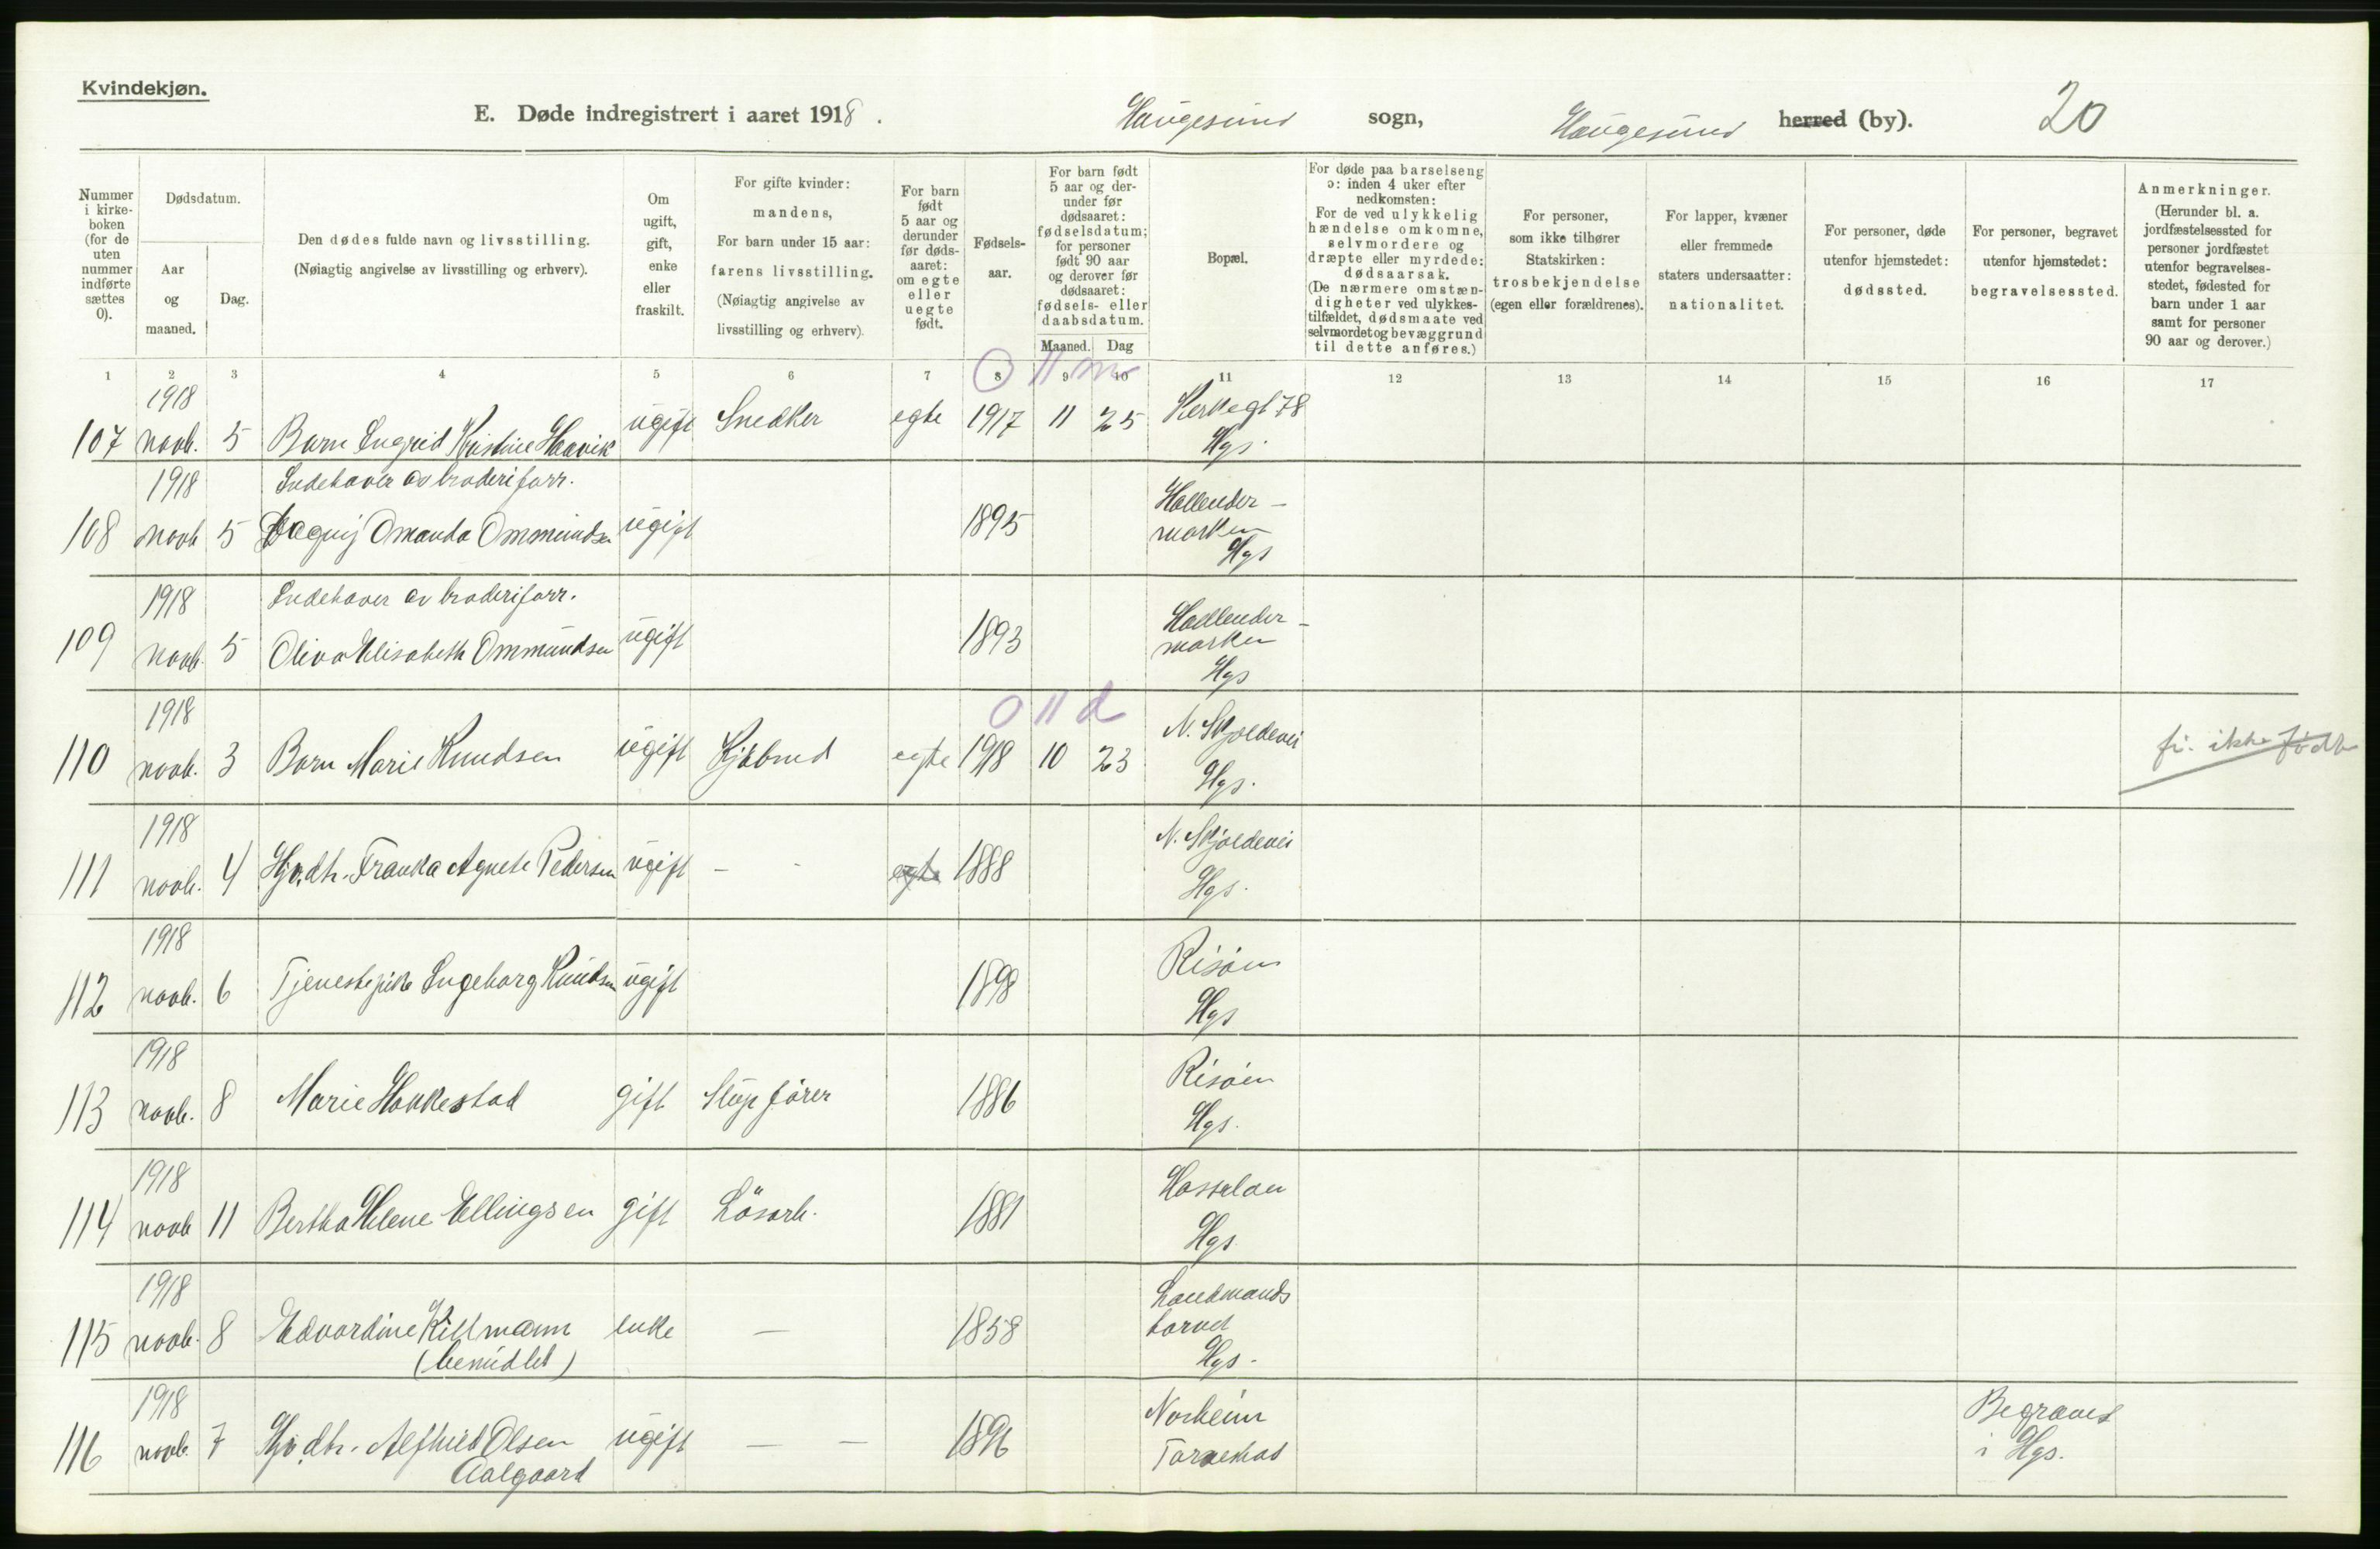 Kvindekjøn.
E. Døde indregistrert i aaret 1918. Haugesund sogn, Haugesund herred (by). 20
Nummer i kirke- boken (for de uten nummer indførte sættes 0).
Dødsdatum.
Aar og maaned.
Dag.
Den dødes fulde navn og livsstilling.
(Nøiagtig angivelse av livsstilling og erhverv).
Om ugift, gift, enke eller fraskilt.
For gifte kvinder: mandens,
For barn under 15 aar: farens livsstilling.
(Nøiagtig angivelse av livsstilling og erhverv).
For barn født 5 aar og derunder før døds- aaret: om egte eller uegte født.
Fødsels- aar.
For barn født 5 aar og der- under før dødsaaret: fødselsdatum; for personer født 90 aar og derover før dødsaaret: fødsels- eller daabsdatum.
Maaned. Dag
Bopæl.
For døde paa barselseng ɔ: inden 4 uker efter nedkomsten:
For de ved ulykkelig hændelse omkomne, selvmordere og dræpte eller myrdede: dødsaarsak.
(De nærmere omstæn- digheter ved ulykkes- tilfældet, dødsmaate ved selvmordet og bevæggrund til dette anføres.)
For personer, som ikke tilhører Statskirken: trosbekjendelse (egen eller forældrenes).
For lapper, kvæner eller fremmede staters undersaatter: nationalitet.
For personer, døde utenfor hjemstedet: dødssted.
For personer, begravet utenfor hjemstedet: begravelsessted.
Anmerkninger.
(Herunder bl. a. jordfæstelsessted for personer jordfæstet utenfor begravelses- stedet, fødested for barn under 1 aar samt for personer 90 aar og derover.)
1 2 3 4 5 6 7 8 9 10 11 12 13 14 15 16 17
0 11 m
1918
107 novb. 5 Barn Ingrid Kristine Haavik ugift Snedker egte 1917 11 25 Kirkegt 78
Hgs.
1918 Indehaver av broderiforr. Hollender-
108 novb 5 Dagny Amanda Ommundsen ugift 1895 marken
Hgs
1918 Indehaver av broderiforr. Hollender-
109 novb. 5 Oliva Elisabeth Ommundsen ugift 1893 marken
Hgs
0 11 d
1918 N. Skjoldevei
110 novb. 3 Barn Marie Knudsen ugift Kjøbmd egte 1918 10 23 Hgs. fi. ikke født
1918 N. Skjoldevei
111 novb. 4 Hjv. dtr. Franka Agnete Pedersen ugift - - egte 1888 Hgs.
1918 Risøen
112 novb. 6 Tjenestepike Ingeborg Knudsen ugift 1898 Hgs
1918 Risøen
113 novb. 8 Marie Haukestad gift Skipsfører 1886 Hgs.
1918 Hasseloen
114 novb 11 Bertha Helene Ellingsen gift Løsarb. 1881 Hgs.
1918 Landmands
115 novb. 8 Edvardine Killmann enke — 1858 torvet
(bemidlet) Hgs.
1918 Norheim Begravet
116 novb. 7 Hjv. dtr. Alfhild Olsen ugift — — 1896 Torvestad i Hgs.
Aalgaard